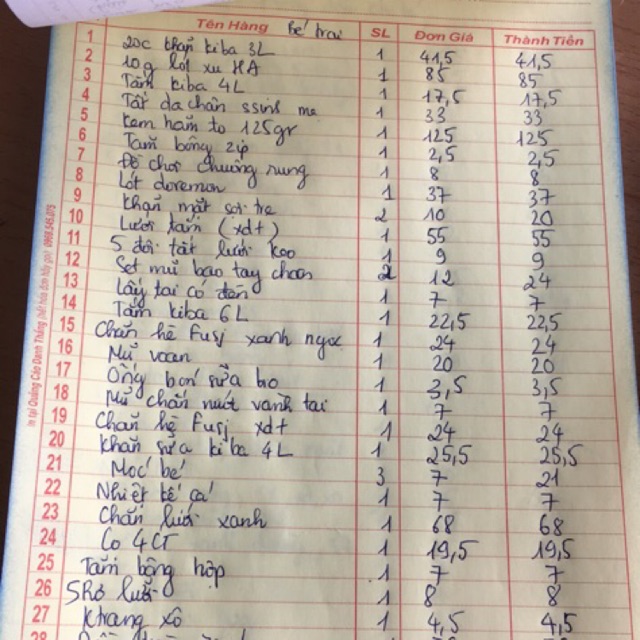 Tên Hàng Bé trai SL Đơn Giá Thành Tiền
1 20c khăn kiba 3L 1 41,5 41,5
2 10g lót xu HA 1 85 85
3 Tắm kiba 4L 1 17,5 17,5
4 Tất da chân ssinh me 1 33 33
5 kem hăm to 125gr 1 125 125
6 Tăm bông zip 1 2,5 2,5
7 Đồ chơi chuông rung 1 8 8
8 Lót doremon 1 37 37
9 khăn mặt sợi tre 2 10 20
10 Lưới tắm (xdt) 1 55 55
11 5 đôi tất lưới 1 9 9
12 Set mũ bao tay chân 2 12 24
13 Lấy tai có đèn 1 7 7
14 Tắm kiba 6L 1 22,5 22,5
15 Chăn hè Fuji xanh ngọc 1 24 24
16 Mũ voan 1 20 20
17 Ống bón sữa bio 1 3,5 3,5
18 Mũ chắn nước vành tai 1 7 7
19 Chăn hè Fuji xdt 1 24 24
20 khăn sữa kiba 4L 1 25,5 25,5
21 Moc bé 3 7 21
22 Nhiệt kế cá 1 7 7
23 Chăn lưới xanh 1 68 68
24 Co 4CT 1 19,5 19,5
25 Tăm bông hộp 1 7 7
26 1 8 8
27 khang xô 1 4,5 4,5
28
In tại Quảng Cáo Danh Thắng 0969.545.075